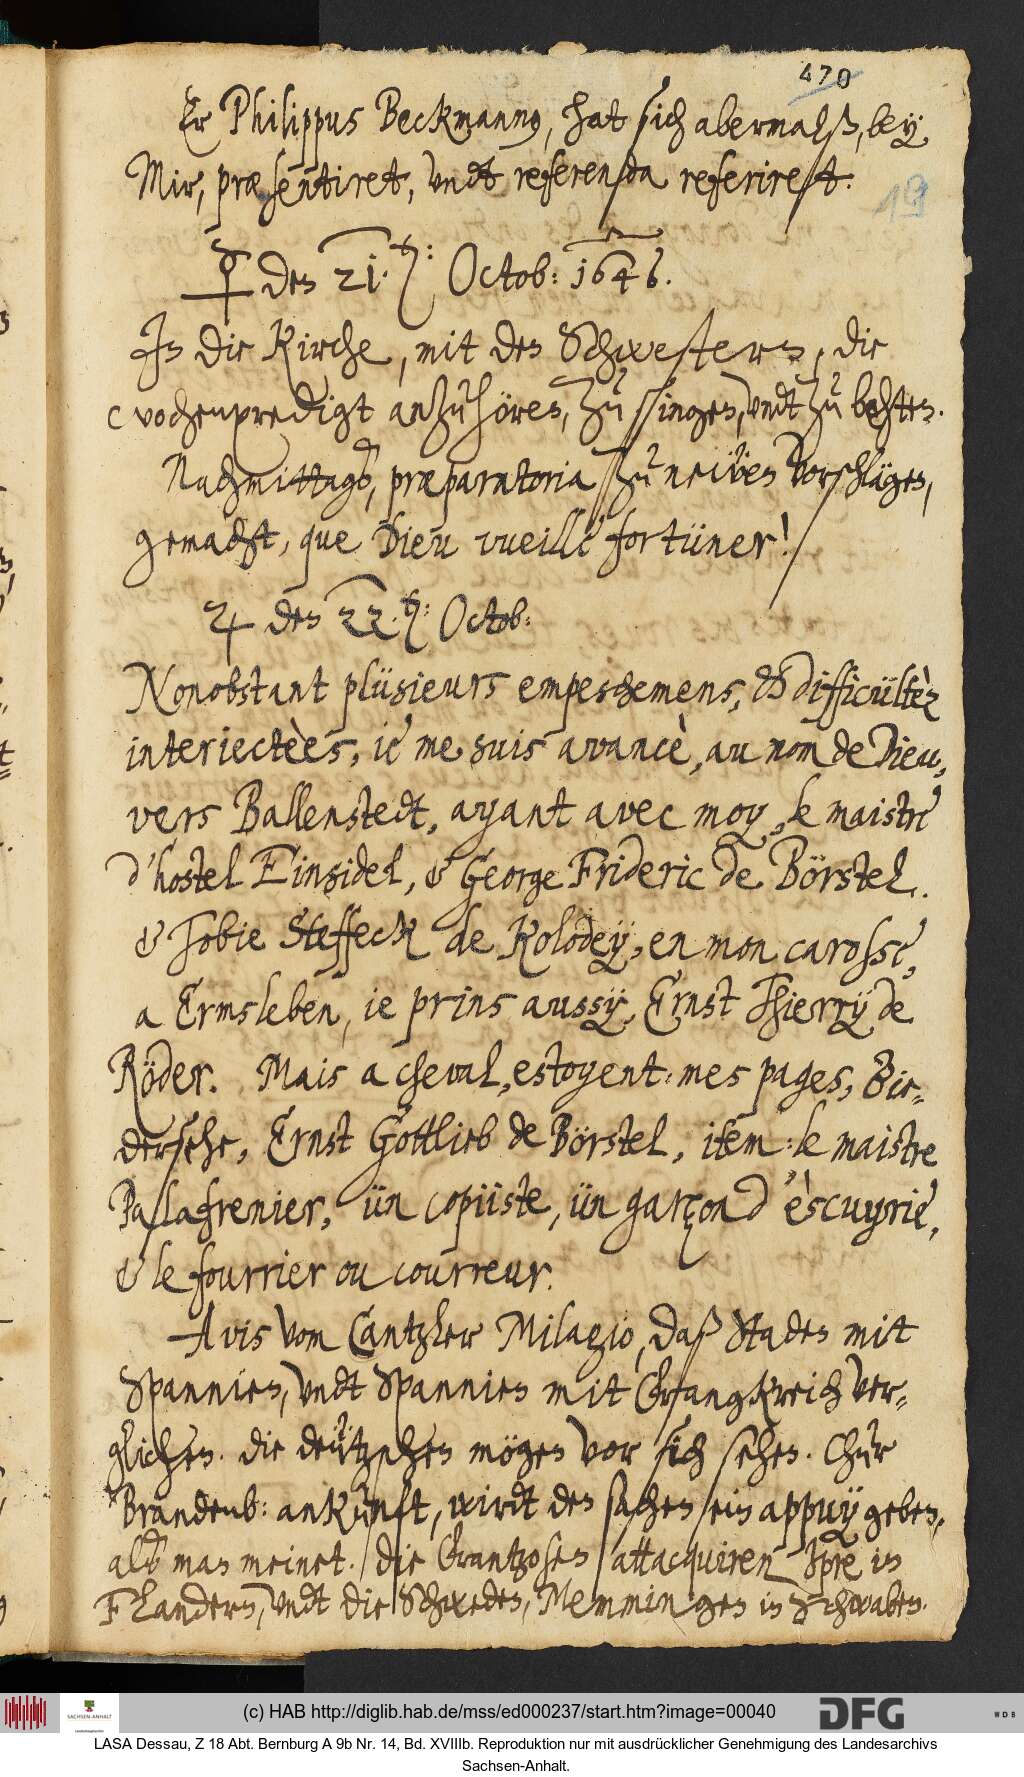 470
Er Philippus Beckmannus, hat sich abermalß, bey
Mir, præsentiret, undt referenda referiret.
19
☿ den 21. Octob: 1646.
In die Kirche, mit den Schwestern, die
wochenpredigt anzuhören, zu singen, undt zu behten.
Nachmittagß, præparatoria zu neẅen vorschlägen,
gemacht, que Dieu vueille fortüner!
♃ den 22. Octob:
Nonobstant plüsieurs empeschemens, & difficültèz
interiectèes, ie me suis avancè, au nom de Dieu,
vers Ballenstedt, ayant avec moy, le maistre
d'hostel Einsidel, & George Frideric de Börstel.
& Tobie Steffeck de Kolodeÿ, en mon carosse,
a Ermsleben, ie prins aussÿ Ernst Thierrÿ de
Röder. Mais a cheval, estoyent: mes pages, Bie-
dersehe, Ernst Gottlieb de Börstel, item: le maistre
Pallafrenier, ün copiiste, ün garçon d'èscuyrie,
& le fourrier ou courreur.
Avis vom Cantzler Milagio, daß Staden mit
Spannien, undt Spannien mit Frangkreich ver-
glichen. die deützschen mögen vor sich sehen. Chur
Brandenb: ankunft, wirdt den sachen ein appuÿ geben,
alß man meinet. Die Frantzosen attacquiren Ipre in
Flandern, undt die Schweden, Memmingen in Schwaben.
(c) HAB http://diglib.hab.de/mss/ed000237/start.htm?image=00040
SACHSEN-ANHALT
DFG
WDB
LASA Dessau, Z 18 Abt. Bernburg A 9b Nr. 14, Bd. XVIIIb. Reproduktion nur mit ausdrücklicher Genehmigung des Landesarchivs
Sachsen-Anhalt.